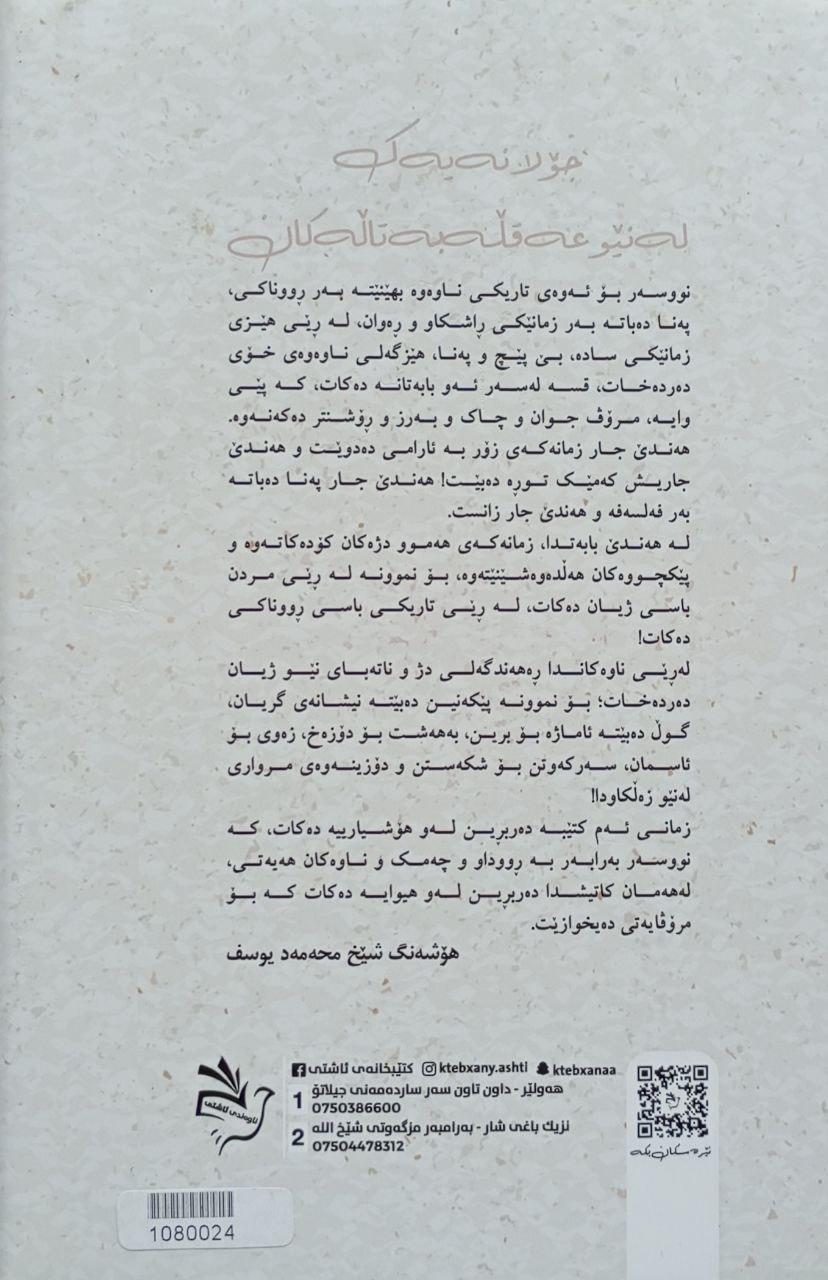 جۆلانەیەک
لەنێو عەقڵە بەتاڵەکان
نووسەر بۆ ئەوەی تاریکی ناوەوە بهێنێتە بەر ڕووناکی،
پەنا دەباتە بەر زمانێکی ڕاشکاو و ڕەوان، لە ڕێی هێزی
زمانێکی سادە، بێ پێچ و پەنا، هێزگەلی ناوەوەی خۆی
دەردەخات، قسە لەسەر ئەو بابەتانە دەکات، کە پێی
وایە، مرۆڤ جوان و چاک و بەرز و ڕۆشنتر دەکەنەوە.
هەندێ جار زمانەکەی زۆر بە ئارامی دەدوێت و هەندێ
جاریش کەمێک توڕە دەبێت! هەندێ جار پەنا دەباتە
بەر فەلسەفە و هەندێ جار زانست.
لە هەندێ بابەتدا، زمانەکەی هەموو دژەکان کۆدەکاتەوە و
پێکچووەکان هەڵدەوەشێنێتەوە، بۆ نموونە لە ڕێی مردن
باسی ژیان دەکات، لە ڕێی تاریکی باسی ڕووناکی
دەکات!
لەڕێی ناوەکاندا ڕەهەندگەلی دژ و ناتەبای نێو ژیان
دەردەخات؛ بۆ نموونە پێکەنین دەبێتە نیشانەی گریان،
گوڵ دەبێتە ئاماژە بۆ برین، بەهەشت بۆ دۆزەخ، زەوی بۆ
ئاسمان، سەرکەوتن بۆ شکەستن و دۆزینەوەی مرواری
لەنێو زەڵکاودا!
زمانی ئەم کتێبە دەربڕین لەو هۆشیارییە دەکات، کە
نووسەر بەرابەر بە ڕووداو و چەمک و ناوەکان هەیەتی،
لەهەمان کاتیشدا دەربڕین لەو هیوایە دەکات کە بۆ
مرۆڤایەتی دەیخوازێت.
هۆشەنگ شێخ محەمەد یوسف
کتێبخانەی ئاشتی ktebxany.ashti ktebxanaa
1 هەولێر - داون تاون سەر ساردەمەنی جیلاتۆ
0750386600
2 نزیك باغی شار - بەرامبەر مزگەوتی شێخ الله
07504478312
ناوەندی ئاشتی
ئێرە سکان بکە
1080024